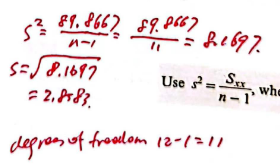 s² = 89.8667/n-1 = 89.8667/11 = 8.1697.
s = √8.1697
= 2.8583.
Use s² = Sxx/n − 1, whe
degrees of freedom 12-1=11